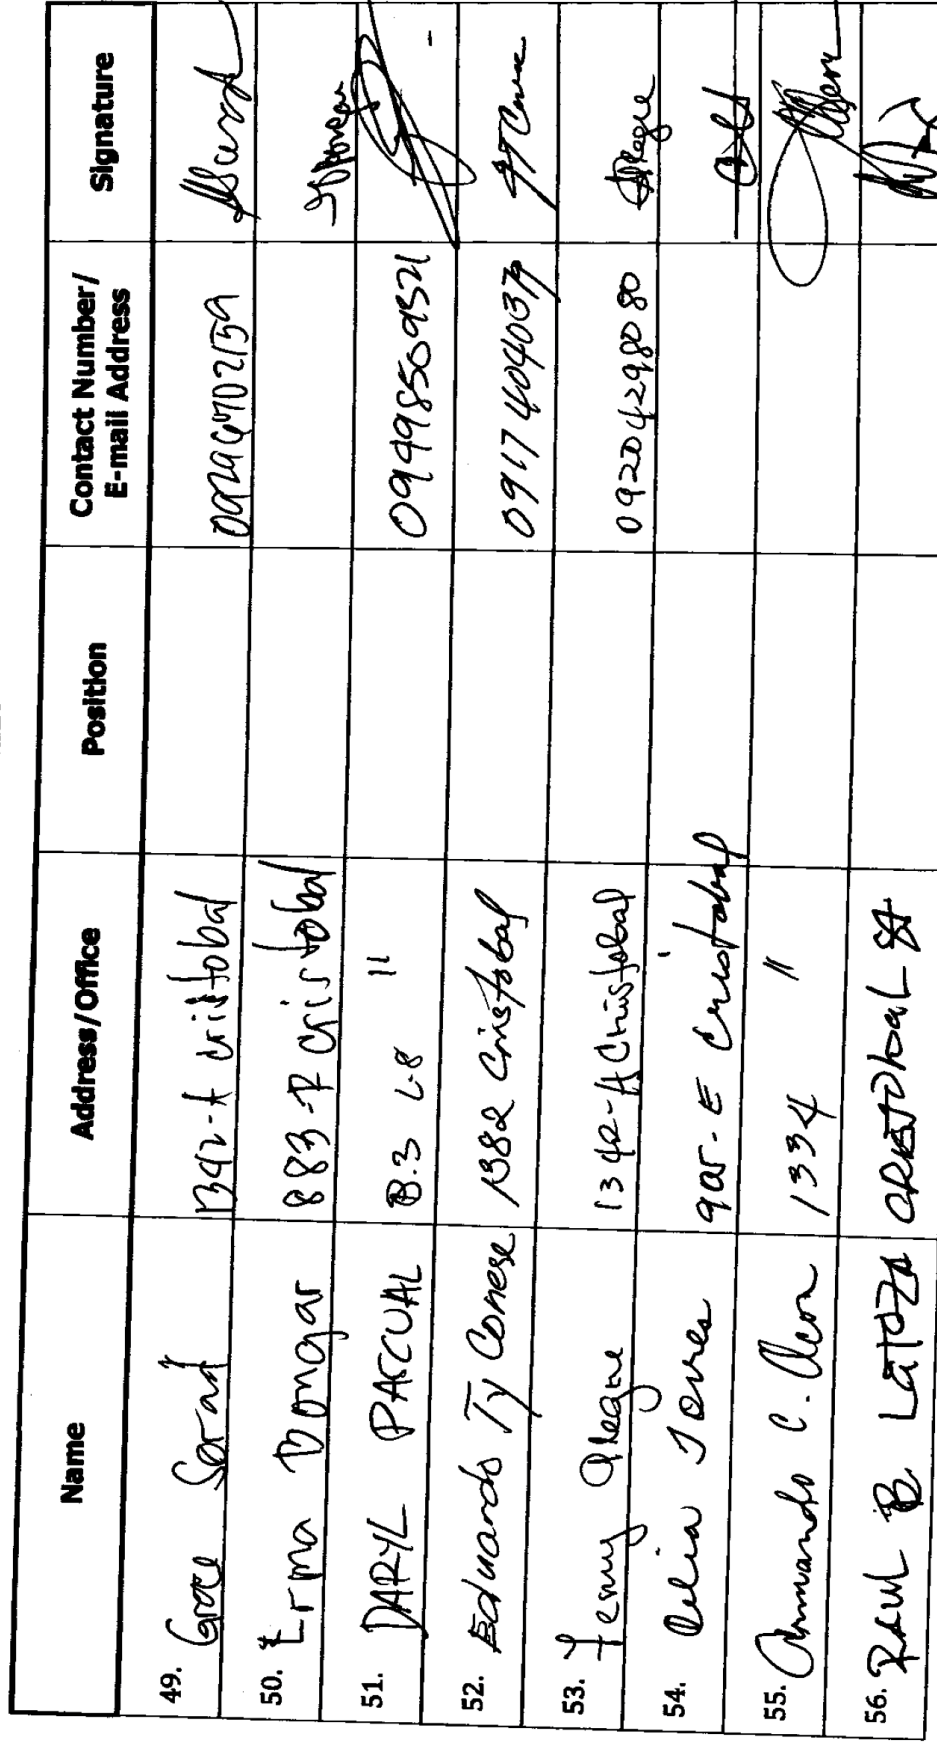 Name Address/Office Position Contact Number/ E-mail Address Signature
49. Grace 1342-A Cristobal
50. Erma Bongar 883-P Cristobal
51. DARYL PASCUAL B.3 L-8 " 09498569321
52. Eduardo Ty Conese 1382 Cristobal 09174040370
53. Femy Alegre 1342-A Cristobal 09204298080 Alegre
54. Delia Torres 905-E Cristobal
55. Armando C. Alcon 1334 "
56. RAUL B. LATOZA CRISTOBAL St